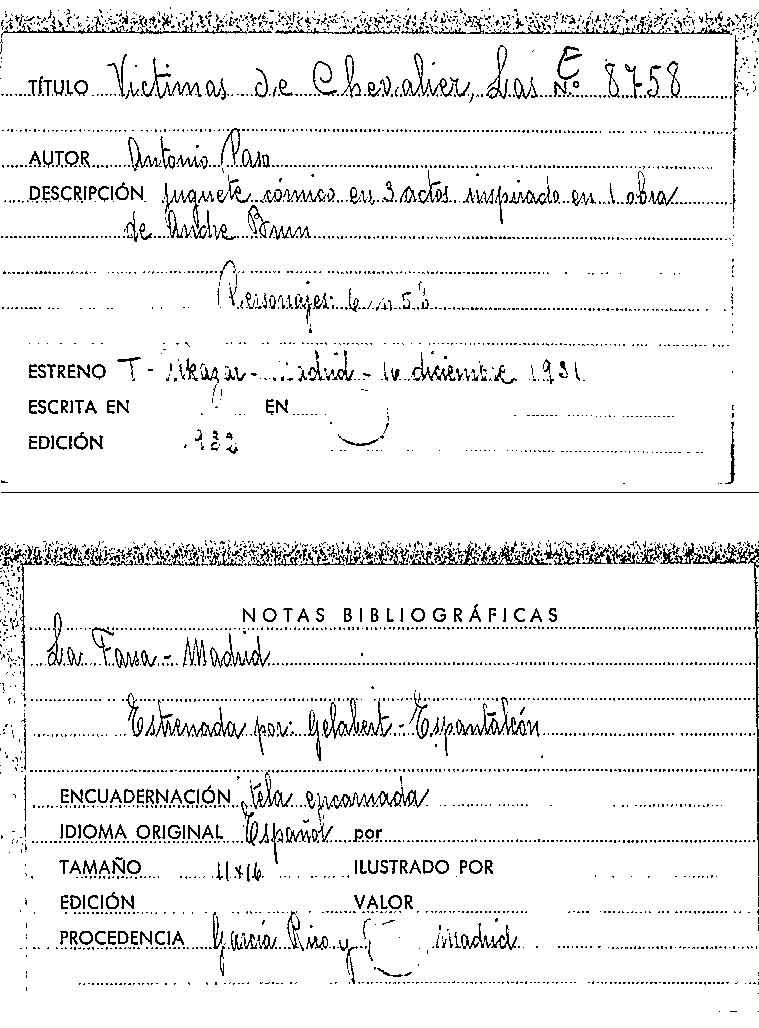 TÍTULO Victimas de Chevalier, Las E Nº 8758
AUTOR Antonio Paso
DESCRIPCIÓN juguete cómico en 3 actos inspirado en 1 obra
de Andre Brun
Personajes: 6 5
ESTRENO T - Alkazar - Madrid - diciembre 1931
ESCRITA EN EN
EDICIÓN 1932
NOTAS BIBLIOGRÁFICAS
La Farsa - Madrid
Estrenada por: Gelabert - Espantaleón
ENCUADERNACIÓN tela encarnada
IDIOMA ORIGINAL Español por
TAMAÑO 11x16 ILUSTRADO POR
EDICIÓN VALOR
PROCEDENCIA García Rico y Madrid